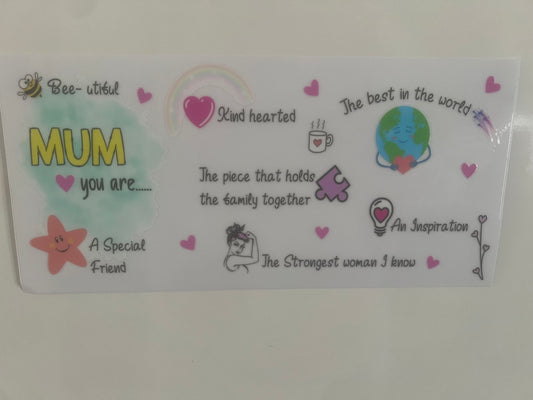 Bee- utiful
MUM
you are......
A Special
Friend
Kind hearted
The piece that holds
the family together
The Strongest woman I know
The best in the world
An Inspiration